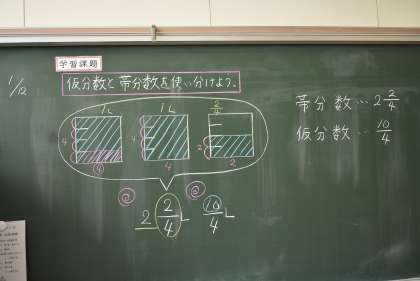 学習課題
1/12
仮分数と帯分数を使い分けよう。
1L 1L 2/4
4 4 2
④ 4 2
2 2/4 L 10/4 L
帯分数…2 2/4
仮分数…10/4